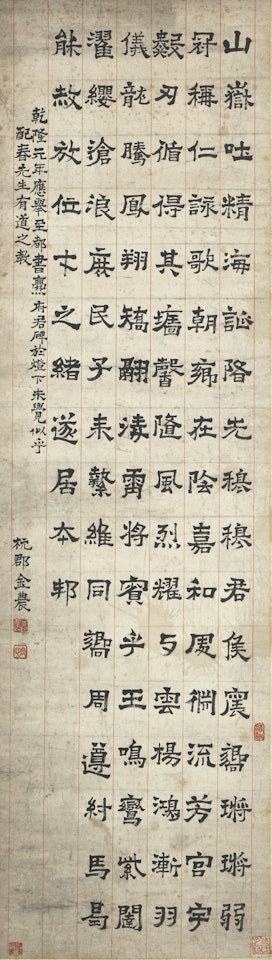 山嶽吐精海誕降光穆穆君侯震響鏘鏘弱
冠稱仁詠歌朝廊在陰嘉和處淵流芳宮宇
數刃循得其牆馨隆風烈耀与雲楊鴻漸羽
儀龍騰鳳翔矯翮淩霄將賓乎王鳴鸞紫闥
濯纓滄浪庶民子來繫維同響周遵紂馬曷
能赦放位卞之緒遂居本邦
乾隆元年應舉至都書府君碑於燈下未覺似乎
配春先生有道之教
杭郡金農